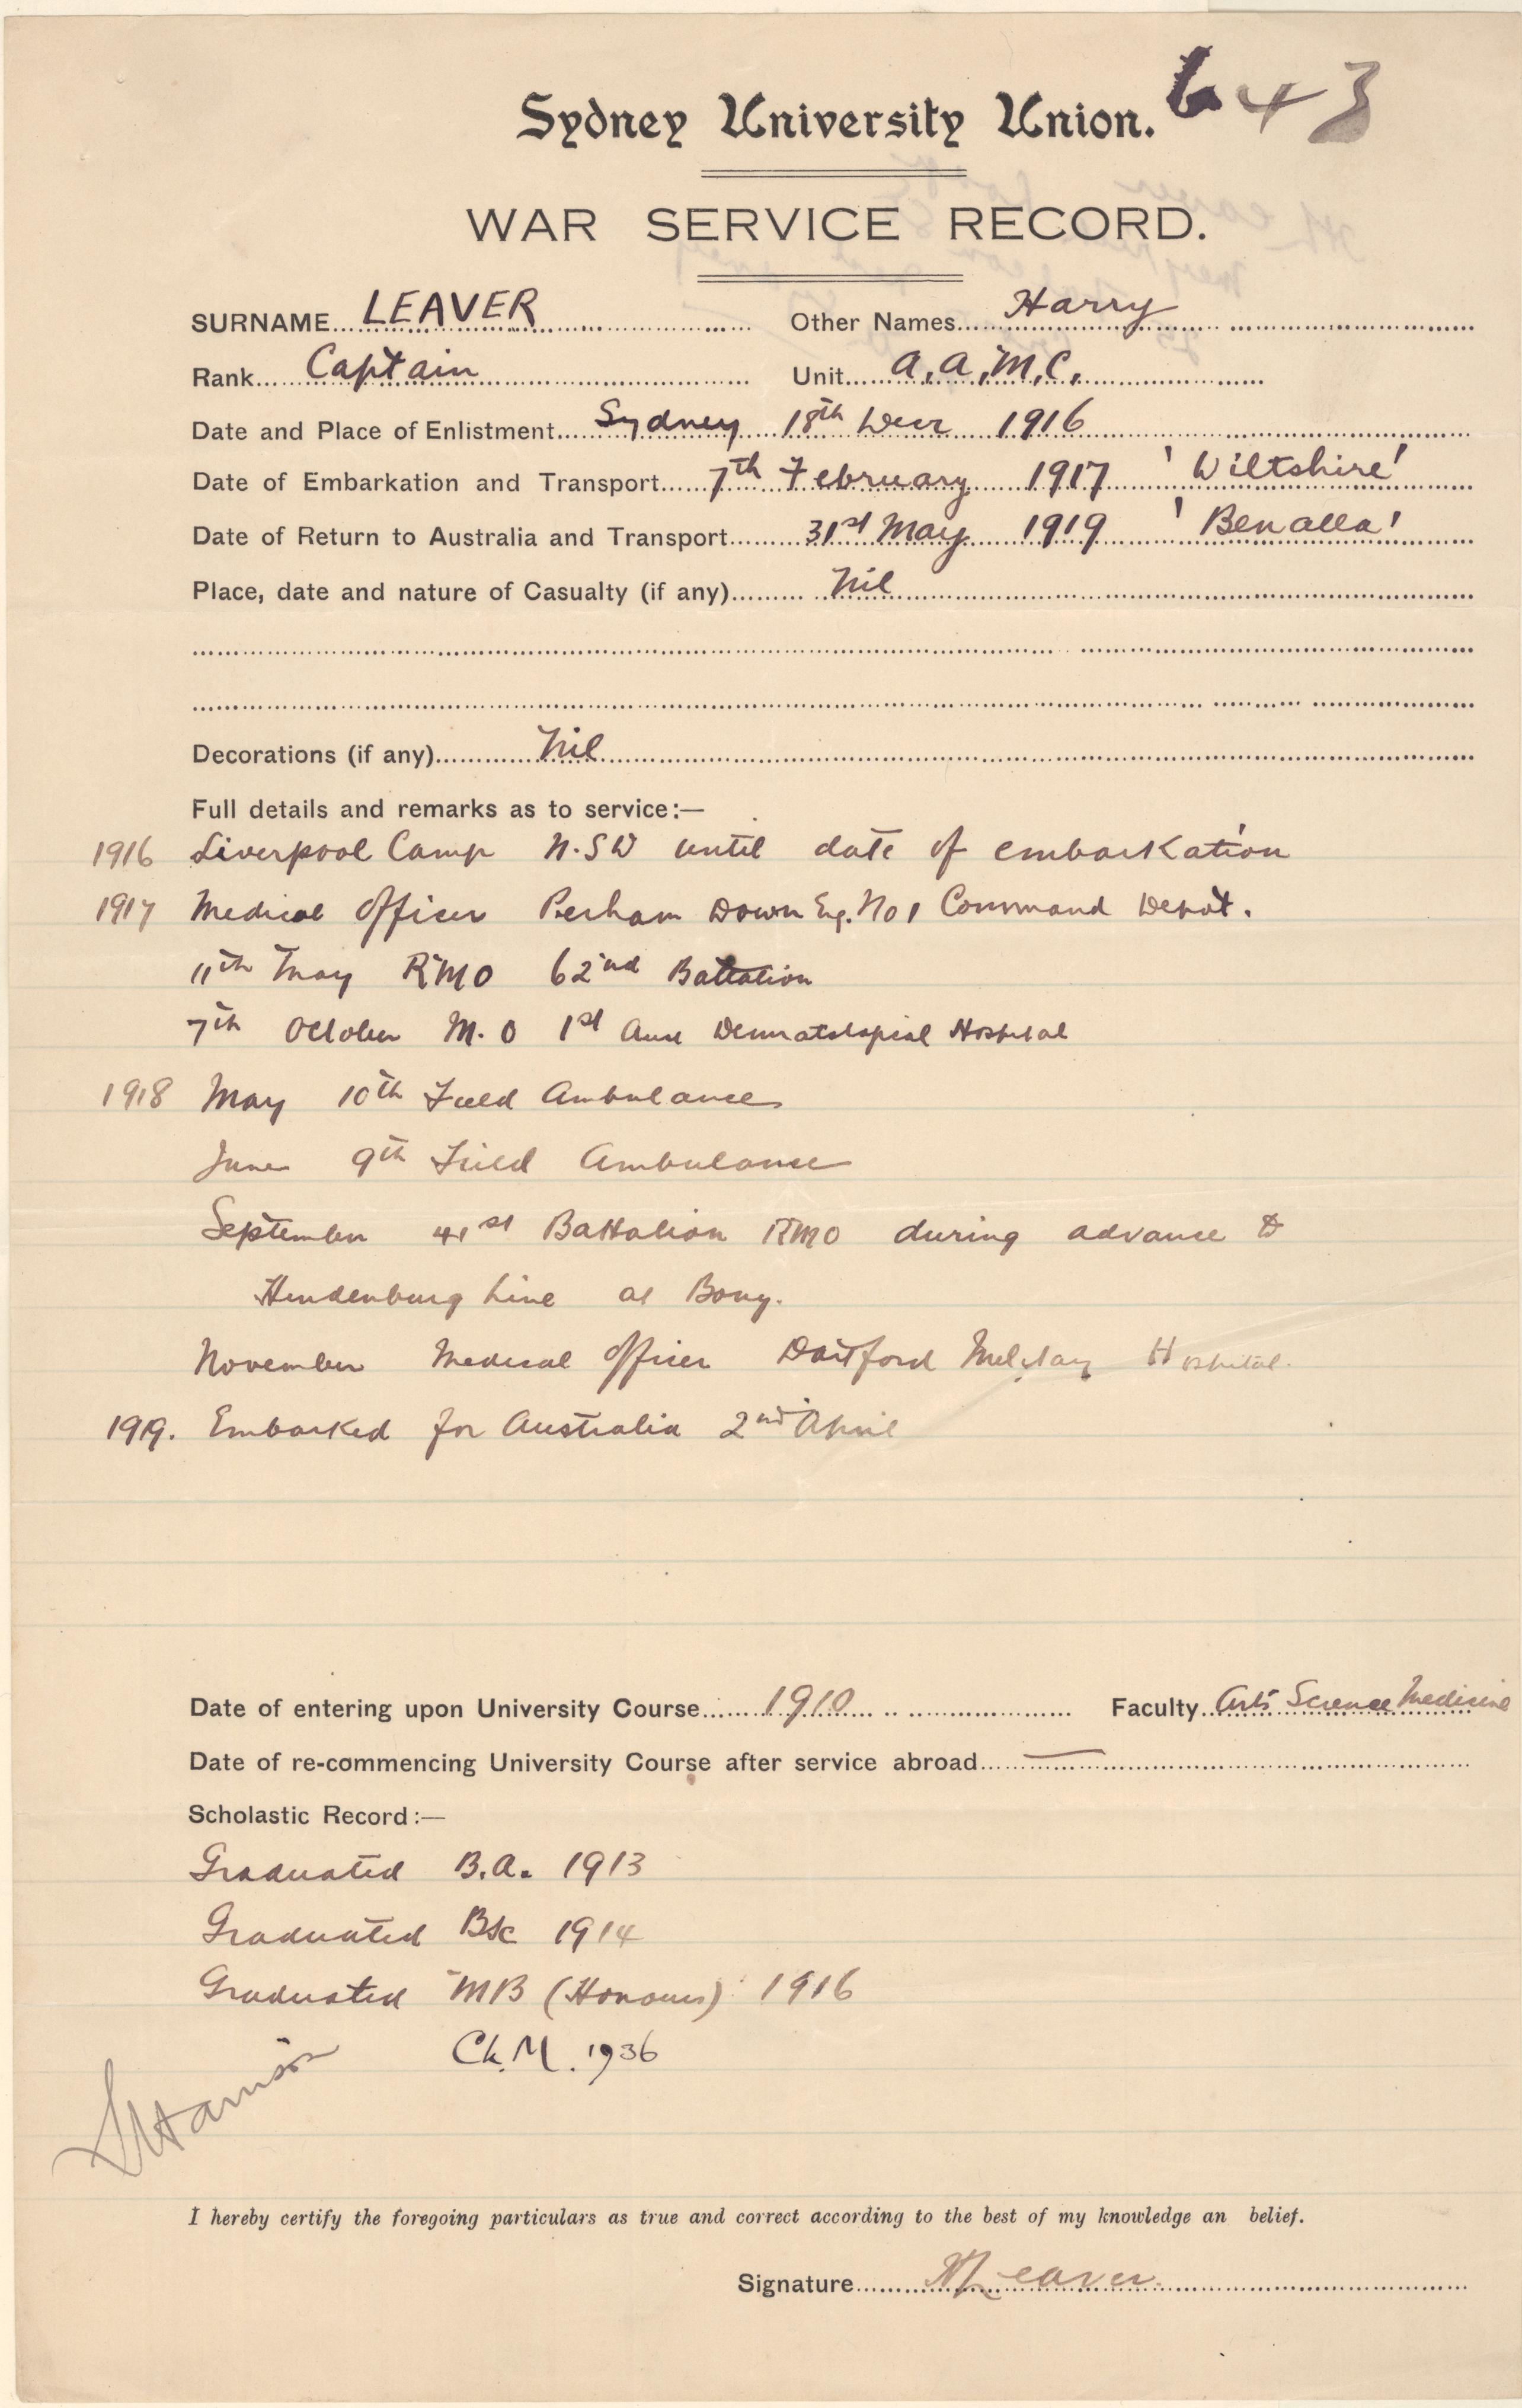 Sydney University Union. 643
WAR SERVICE RECORD.
SURNAME LEAVER Other Names Harry
Rank Captain Unit A.A.M.C.
Date and Place of Enlistment Sydney 18th Decr 1916
Date of Embarkation and Transport 7th February 1917 'Wiltshire'
Date of Return to Australia and Transport 31st May 1919 'Benalla'
Place, date and nature of Casualty (if any) Nil
Decorations (if any) Nil
Full details and remarks as to service:—
1916 Liverpool Camp N.SW until date of embarkation
1917 Medical Officer Perham Down Eng. No 1 Command Depot.
11th May RMO 62nd Battalion
7th October M.O 1st Aust Dermatological Hospital
1918 May 10th Field Ambulance
June 9th Field Ambulance
September 41st Battalion RMO during advance to
Hindenburg Line at Bony.
November Medical Officer Dartford Military Hospital.
1919. Embarked for Australia 2nd April
Date of entering upon University Course 1910 Faculty Arts Science Medicine
Date of re-commencing University Course after service abroad —
Scholastic Record:—
Graduated B.A. 1913
Graduated BSc 1914
Graduated MB (Honours) 1916
Ch.M. 1936
I hereby certify the foregoing particulars as true and correct according to the best of my knowledge an belief.
Signature H Leaver